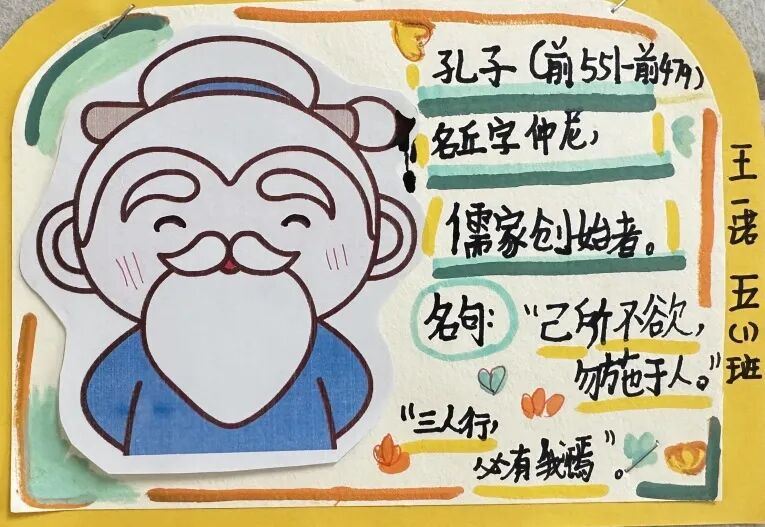 孔子（前551-前479）
名丘字仲尼，
儒家创始者。
名句：“己所不欲，
勿施于人。”
“三人行，
必有我焉”。
王一诺 五(1)班